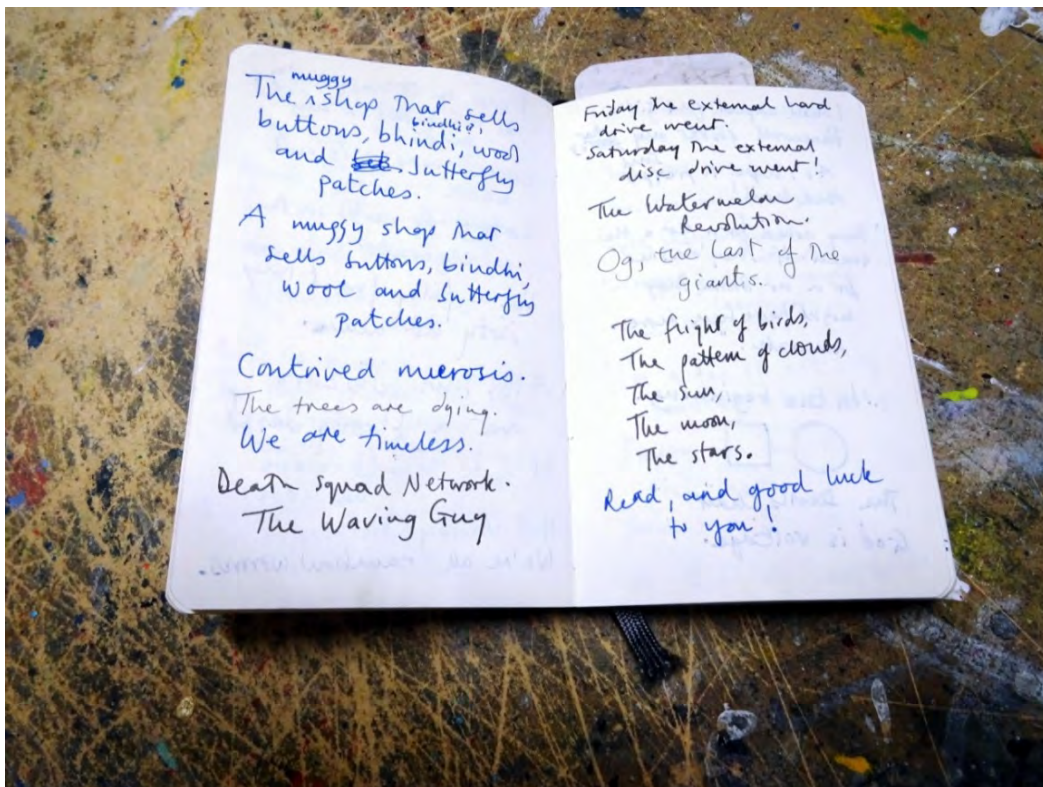 muggy
The ^ shop that sells
bindhis,
buttons, bhindi, wool
and butterfly
patches.
A muggy shop that
sells buttons, bindhi,
wool and butterfly
patches.
Contrived
The trees are dying.
We are timeless.
Death Squad Network.
The Waving Guy
Friday the external hard
drive went.
Saturday the external
disc drive went!
The Watermelon
Revolution.
Og, the last of the
giants.
The flight of birds,
The pattern of clouds,
The sun,
The moon,
The stars.
Read, and good luck
to you!
God is voltage.